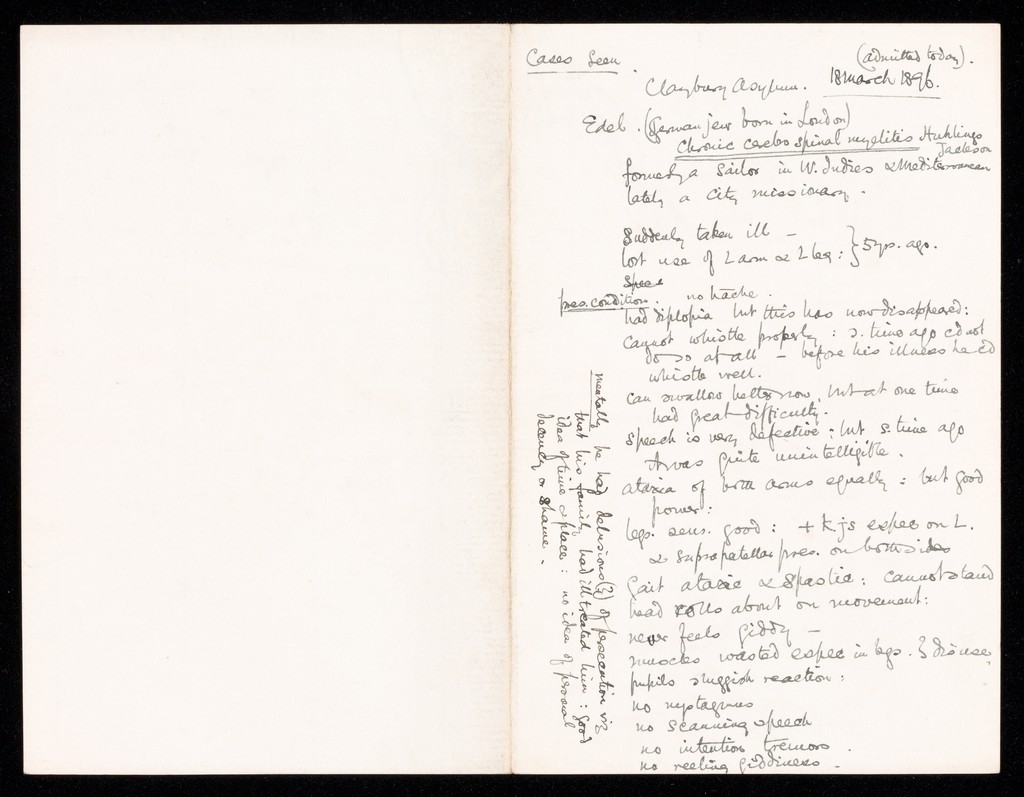 Cases seen.
(admitted today).
Claybury Asylum. 18 March 1896.
Edel. (German jew born in London)
Chronic cerebo spinal myelitis Huhlings
Jackson
formerly a sailor in W. Indies & Mediterranean
lately a city missionary.
Suddenly taken ill –
lost use of L arm & L leg : } 5 yrs. ago.
spee
pres. condition. no hache.
had diplopia but this has now disappeared :
cannot whistle properly : s. time ago cd not
do so at all – before his illness he cd
whistle well.
can swallow better now, but at one time
had great difficulty.
speech is very defective : but s. time ago
it was quite unintelligible.
ataxia of both arms equally : but good
power :
legs. sens. good : + k.js espec on L.
& suprapatellar pres. on both sides
gait ataxic & spastic : cannot stand
head rolls about on movement :
never feels giddy –
muscles wasted espec in legs. ? disuse.
pupils sluggish reaction :
no nystagmus
no scanning speech
no intention tremors.
no reeling giddiness –
mentally he had delusions (?) of persecution viz
that his family had illtreated him : good
idea of time & place : no idea of personal
decency or shame.